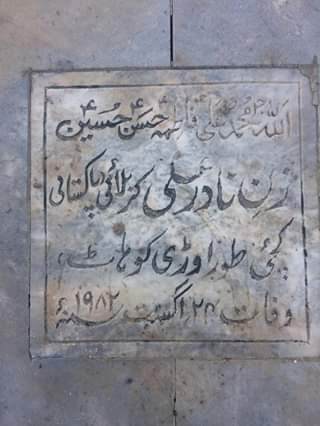 اللہ محمدؐ علیؑ فاطمہؑ حسنؑ حسینؑ
زن نادر علی کربلائی پاکستانی
کچئی طوراوڑی کوہاٹ،
وفات ۲۴ اگست سنہ ۱۹۸۲ء